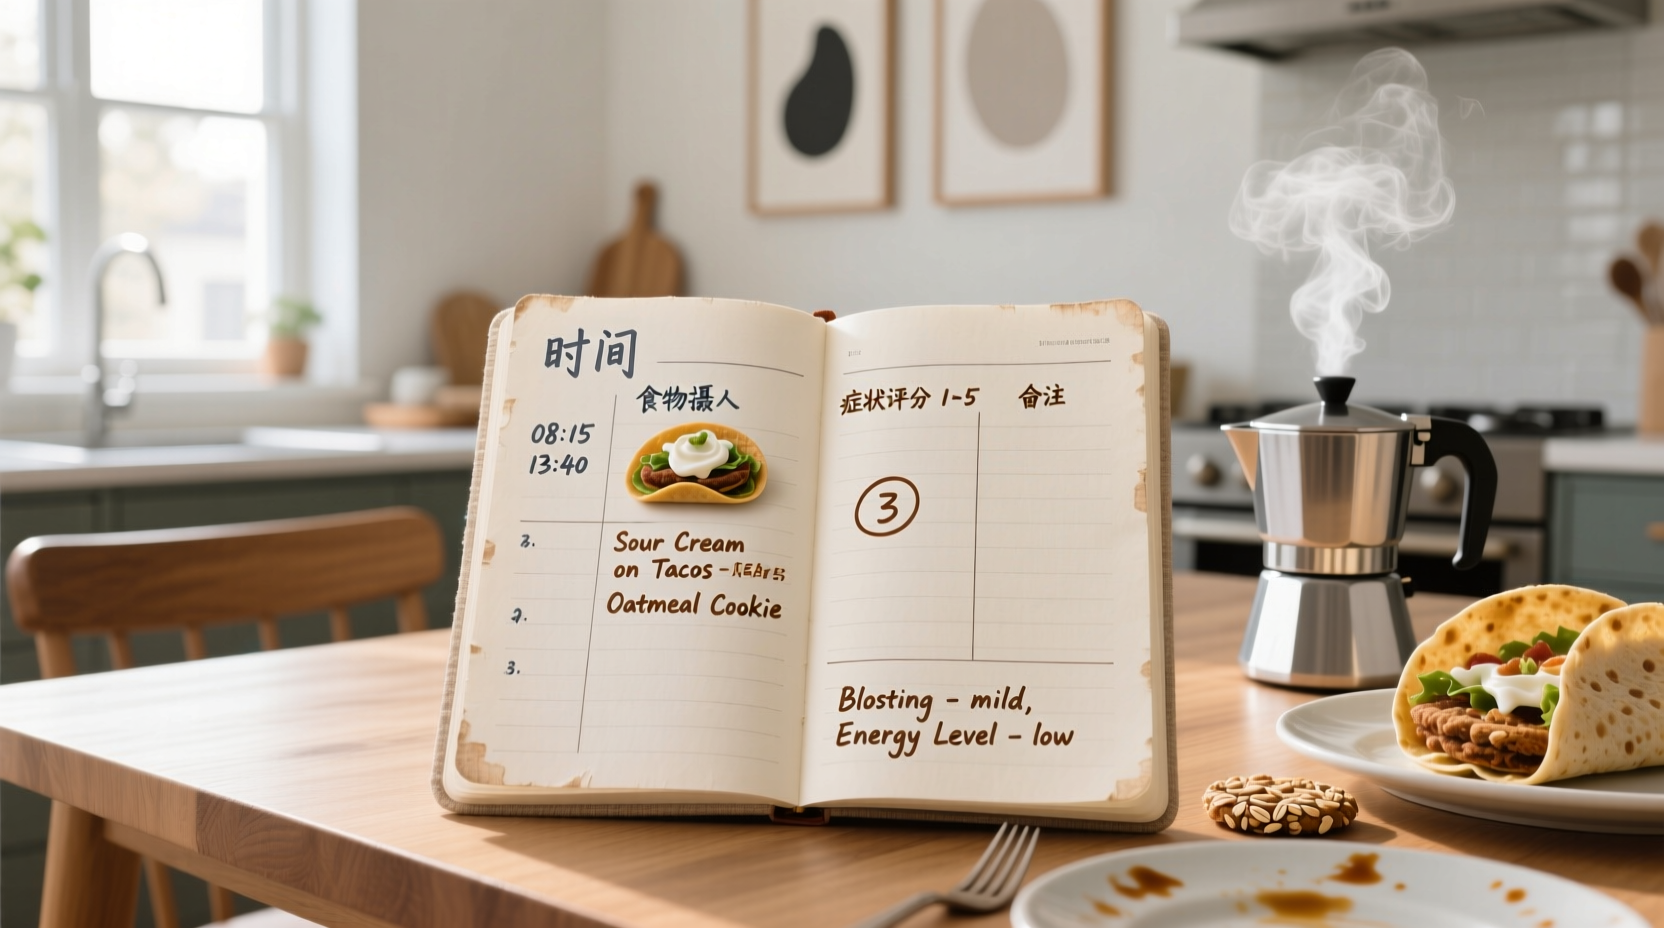 时间
食物摄人
08:15
13:40
3.
Sour Cream
on Tacos -
Oatmeal Cookie
2.
3.
症状评分 1-5
注
3
Blosting - mild,
Energy Level - low